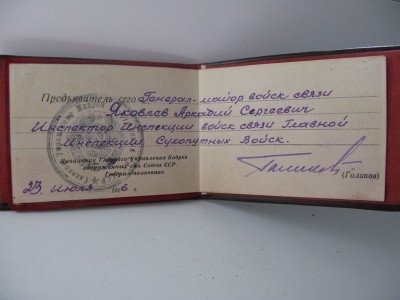 Предъявитель сего Генерал-майор войск связи
Яковлев Аркадий Сергеевич
Инспектор Инспекции войск связи Главной
Инспекции Сухопутных Войск.
Начальник Главного Управления Кадров
Вооруженных Сил Союза ССР
Генерал-полковник
(Голиков)
23 июля 1946 г.